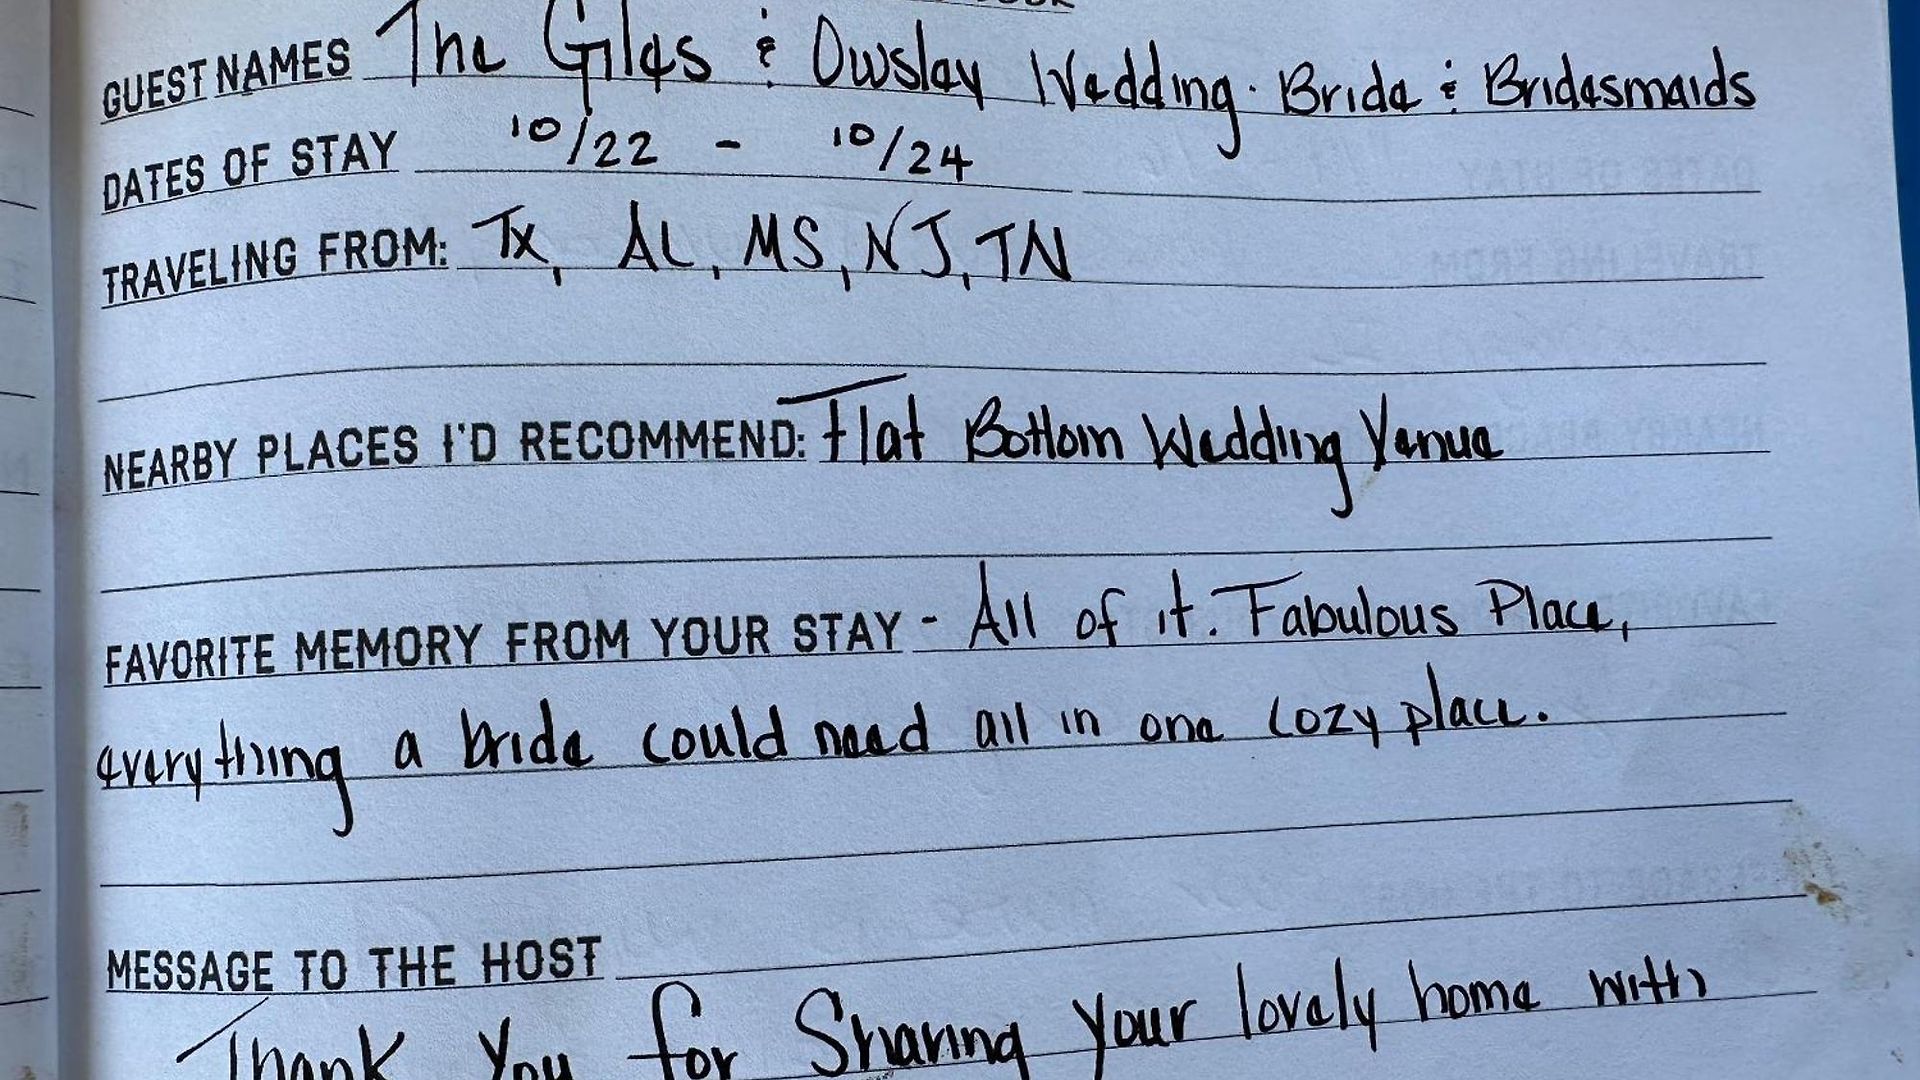 GUEST NAMES The Giles & Owsley Wedding. Bride & Bridesmaids
DATES OF STAY 10/22 - 10/24
TRAVELING FROM: TX, AL, MS, NJ, TN
NEARBY PLACES I'D RECOMMEND: Flat Bottom Wedding Venue
FAVORITE MEMORY FROM YOUR STAY - All of it. Fabulous Place,
everything a bride could need all in one cozy place.
MESSAGE TO THE HOST
Thank you for Sharing your lovely home with